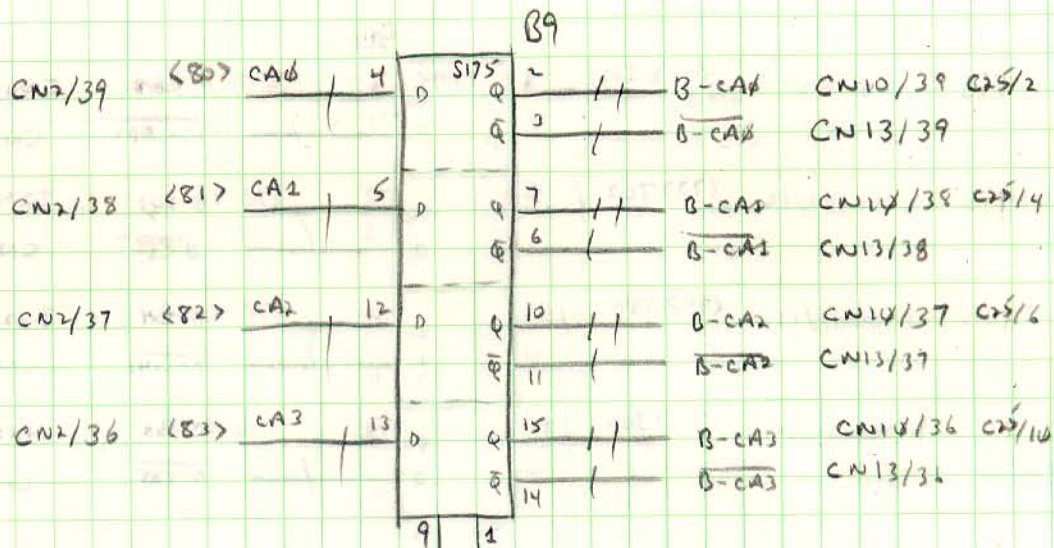 B9
S175
CN2/39 <80> CAØ 4 D Q 2 B-CAØ CN10/39 C25/2
Q̅ 3 B-CAØ CN13/39
CN2/38 <81> CA1 5 D Q 7 CN1Ø/38 C25/4
Q̅ 6 B-CA1 CN13/38
CN2/37 <82> CA2 12 D Q 10 B-CA2 CN1Ø/37 C25/6
Q̅ 11 B-CA2 CN13/37
CN2/36 <83> CA3 13 D Q 15 B-CA3 CN1Ø/36 C25/10
Q̅ 14 B-CA3 CN13/36
9 1